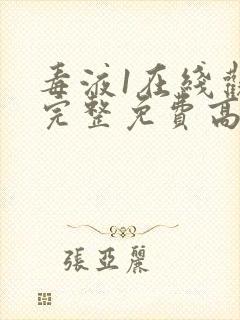 毒液1在线
完整免費高
張亞麗